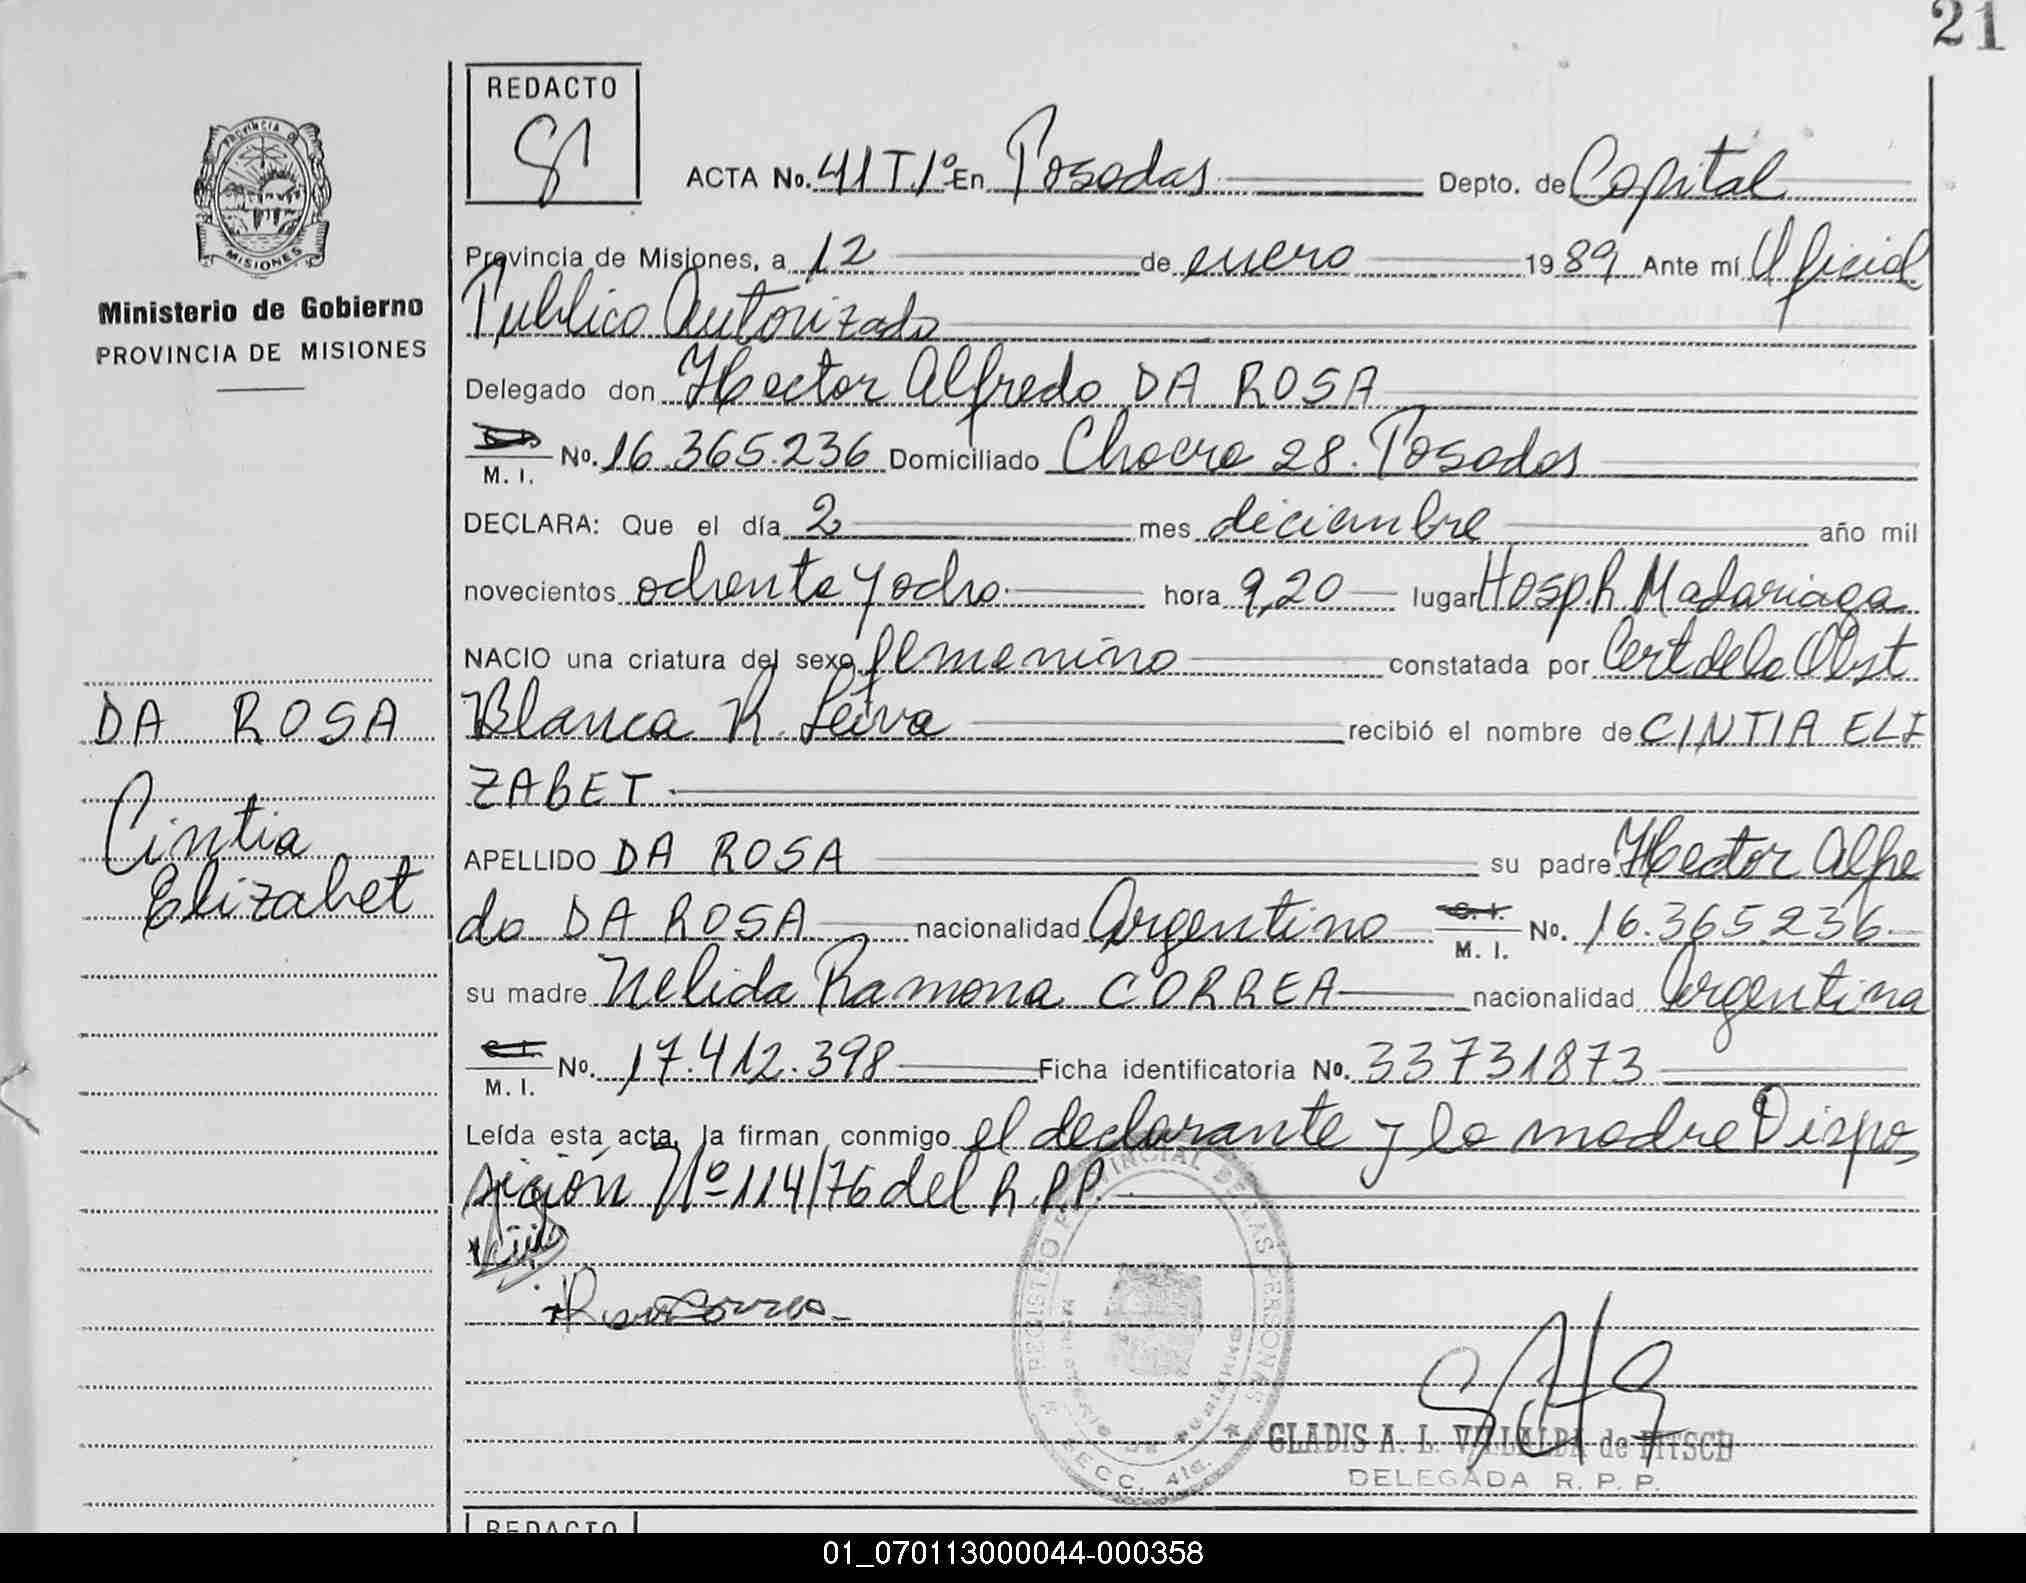 21
REDACTO
PROVINCIA DE
MISIONES
Ministerio de Gobierno
PROVINCIA DE MISIONES
ACTA No. 41 T.1º En Posadas Depto. de Capital
Provincia de Misiones, a 12 de enero 1989 Ante mí Oficial
Publico Autorizado
Delegado don Hector Alfredo DA ROSA
M. I. No. 16.365.236 Domiciliado Chacra 28. Posadas
DECLARA: Que el día 2 mes diciembre año mil
novecientos ochenta y ocho hora 9,20 lugar Hosp. R. Madariaga
NACIO una criatura del sexo femenino constatada por Cert de la Obst
Blanca R. Leiva recibió el nombre de CINTIA ELI
ZABET
APELLIDO DA ROSA su padre Hector Alfre
do DA ROSA nacionalidad Argentino C. I. M. I. No. 16.365.236
su madre Nelida Ramona CORREA nacionalidad Argentina
C. I. M. I. No. 17.412.398 Ficha identificatoria No. 33731873
Leída esta acta, la firman conmigo el declarante y la madre Dispo
sición Nº 114/76 del R.P.P.
DA ROSA
Cintia
Elizabet
REGISTRO PROVINCIAL DE LAS PERSONAS
MINISTERIO DE GOBIERNO
SECC. 41a.
GLADIS A. L. VILLALBA de FITSCH
DELEGADA R. P. P.
REDACTO
01_070113000044-000358